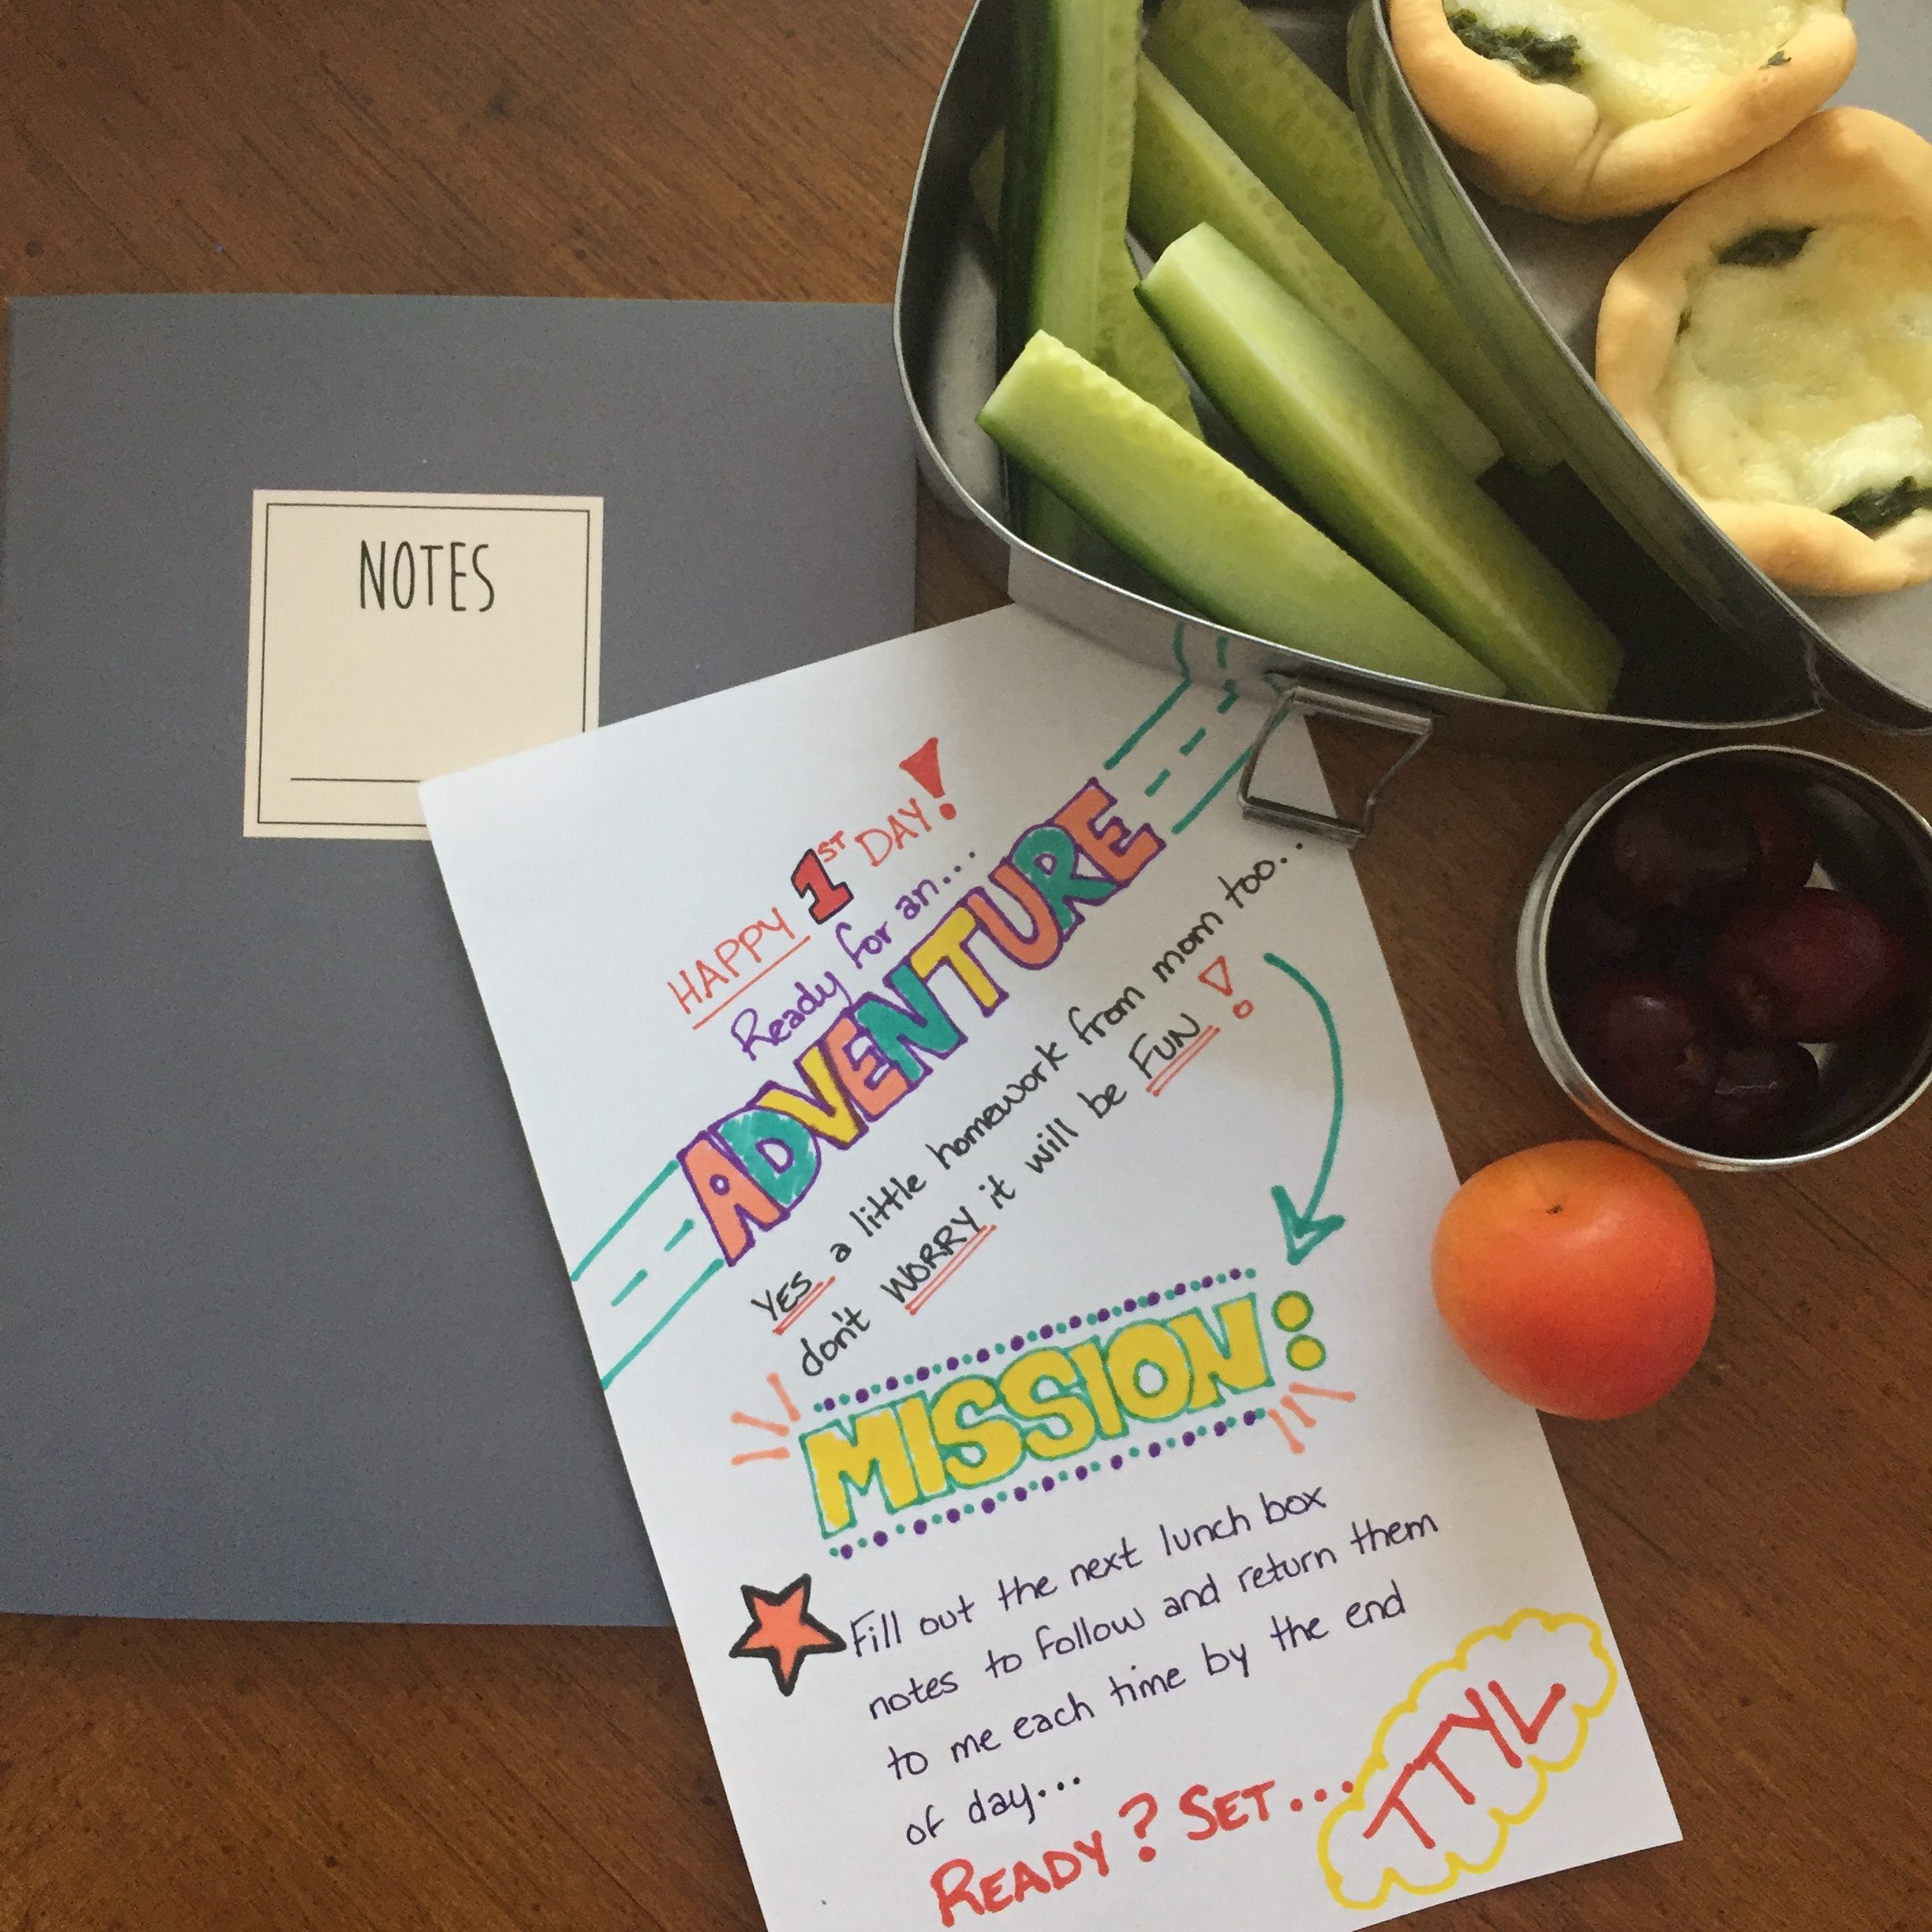 NOTES
HAPPY 1ST DAY!
Ready for an...
ADVENTURE
YES a little homework from mom too...
don't WORRY it will be FUN!
MISSION:
Fill out the next lunch box
notes to follow and return them
to me each time by the end
of day...
READY? SET... TTYL